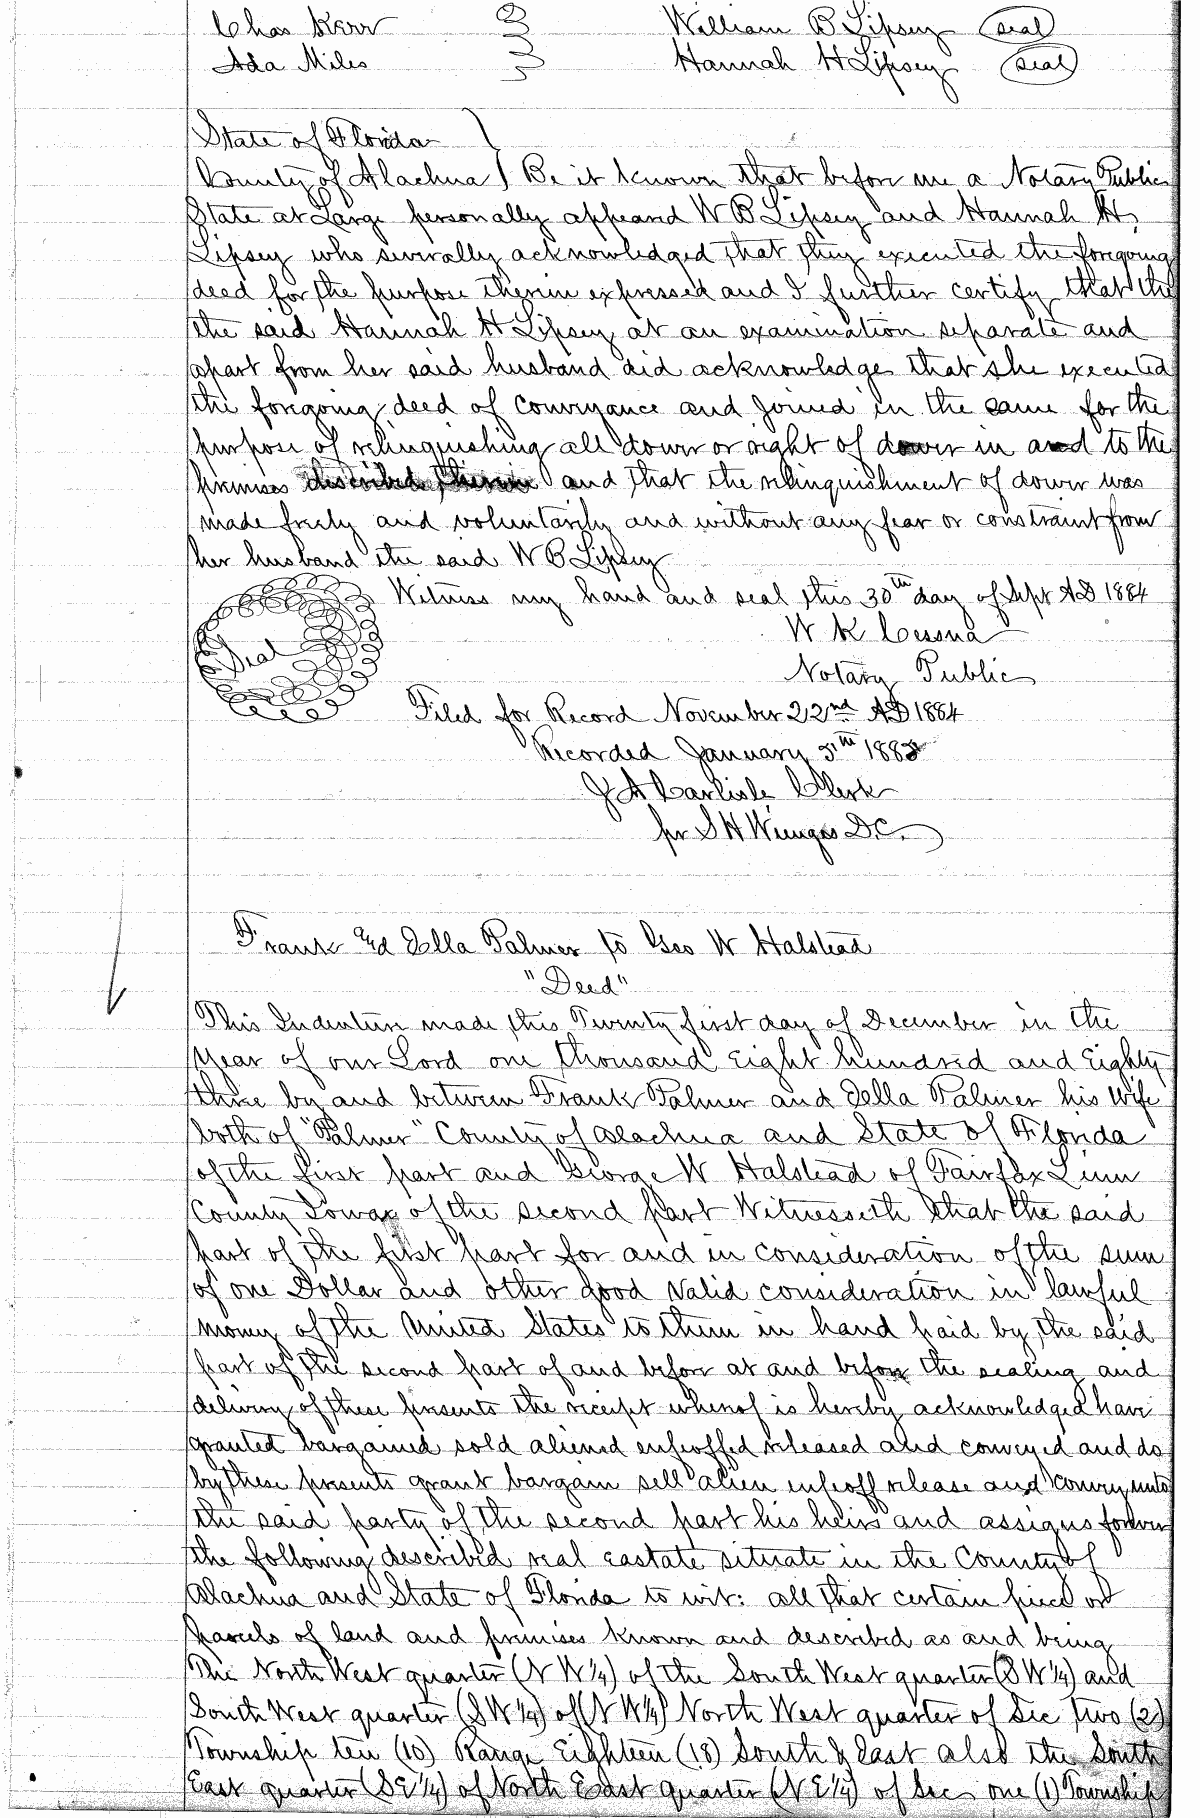 Chas Kerr William B Lipsey seal
Ada Miles Hannah H Lipsey seal
State of Florida
County of Alachua Be it known that before me a Notary Public
State at Large personally appeard W B Lipsey and Hannah H
Lipsey who severally acknowledged that they executed the foregoing
deed for the purpose therein expressed and I further certify that the
the said Hannah H Lipsey at an examination separate and
apart from her said husband did acknowledge that she executed
the foregoing deed of conveyance and joined in the same for the
purpose of relinquishing all dower or right of dower in and to the
premises and that the relinquishment of dower was
made freely and voluntarily and without any fear or constraint from
her husband the said W B Lipsey
Witness my hand and seal this 30th day of Sept AD 1884
Seal
W K Cessna
Notary Public
Filed for Record November 22nd AD 1884
Recorded January 5th 1885
J A Carlisle Clerk
pr S H Wienges D.C.
Frank and Della Palmer to Geo W Halstead
"Deed"
This Indenture made this Twenty first day of December in the
Year of our Lord one thousand Eight hundred and Eighty
three by and between Frank Palmer and Della Palmer his Wife
both of "Palmer" County of Alachua and State of Florida
of the first part and George W Halstead of Fairfax Linn
County Iowa of the second part Witnesseth that the said
part of the first part for and in consideration of the sum
of one Dollar and other good valid consideration in lawful
money of the United States to them in hand paid by the said
part of the second part of and before at and before the sealing and
delivery of these presents the receipt whereof is hereby acknowledged have
granted bargained sold aliened enfeoffed released and conveyed and do
by these presents grant bargain sell alien enfeoff release and convey unto
the said party of the second part his heirs and assigns forever
the following described real eastate situate in the County of
Alachua and State of Florida to wit: all that certain piece or
parcels of land and premises known and described as and being
The North West quarter (N W ¼) of the South West quarter (S W ¼) and
South West quarter (S W ¼) of (N W ¼) North West quarter of Sec two (2)
Township ten (10) Range Eighteen (18) South & East also the South
East quarter (S E ¼) of North East quarter (N E ¼) of Sec one (1) Township